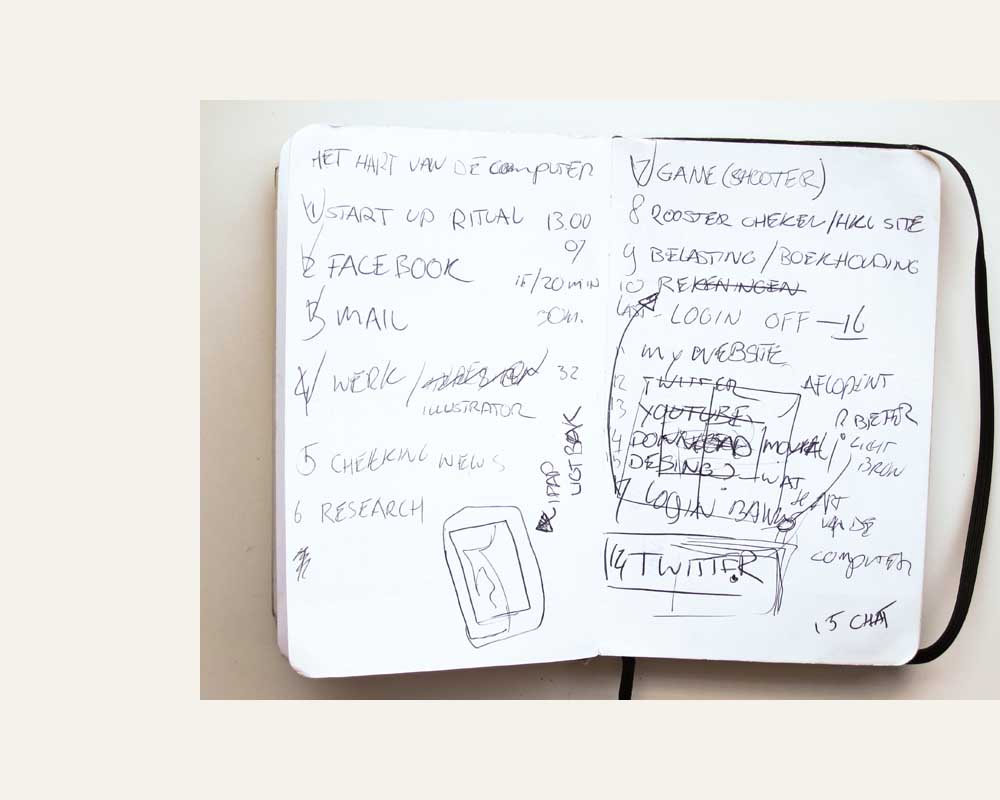 HET HART VAN DE COMPUTER
1 START UP RITUAL 13.00
07
2 FACEBOOK 15/20 MIN
3 MAIL 30M.
4 WERK / 32
ILLUSTRATOR
5 CHEKKING NEWS
6 RESEARCH
IPAD
LIGTBAK
7 GAME (SHOOTER)
8 ROOSTER CHEKEN/HKU SITE
9 BELASTING / BOEKHOUDING
10 REKENINGEN
LAST - LOGIN OFF — 16
11 MY WEBSITE
12 TWITTER
13 YOUTUBE
14 DOWNLOAD
15 DESING WAT
LOGIN
14 TWITTER
15 CHAT
AFLOPINT
LICHT
BRON
HART
VAN DE
COMPUTER